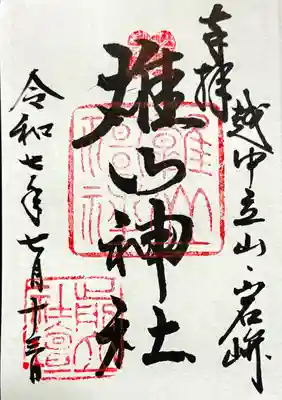 奉拝
越中立山・岩峅
雄山神社
令和七年七月十三日
雄山
神社